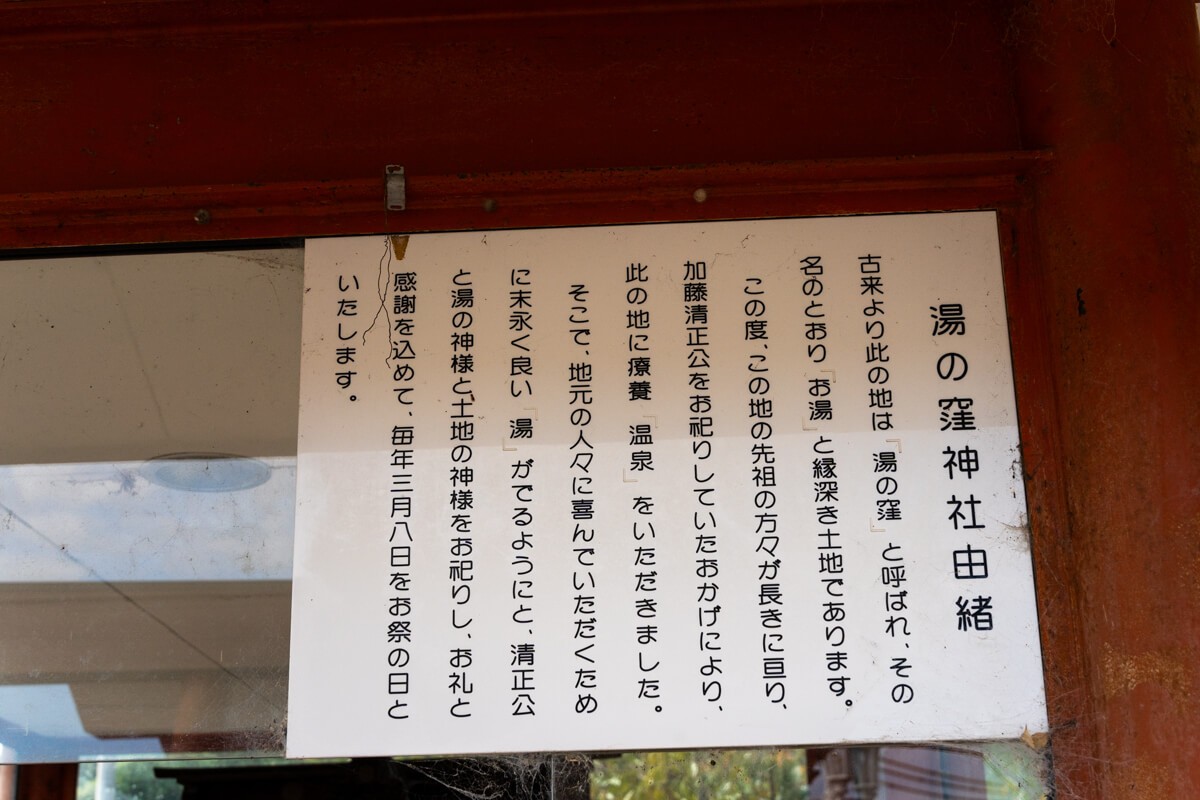 湯の窪神社由緒
古来より此の地は『湯の窪』と呼ばれ、その
名のとおり『お湯』と縁深き土地であります。
この度、この地の先祖の方々が長きに亘り、
加藤清正公をお祀りしていたおかげにより、
此の地に療養『温泉』をいただきました。
そこで、地元の人々に喜んでいただくため
に末永く良い『湯』がでるようにと、清正公
と湯の神様と土地の神様をお祀りし、お礼と
感謝を込めて、毎年三月八日をお祭の日と
いたします。